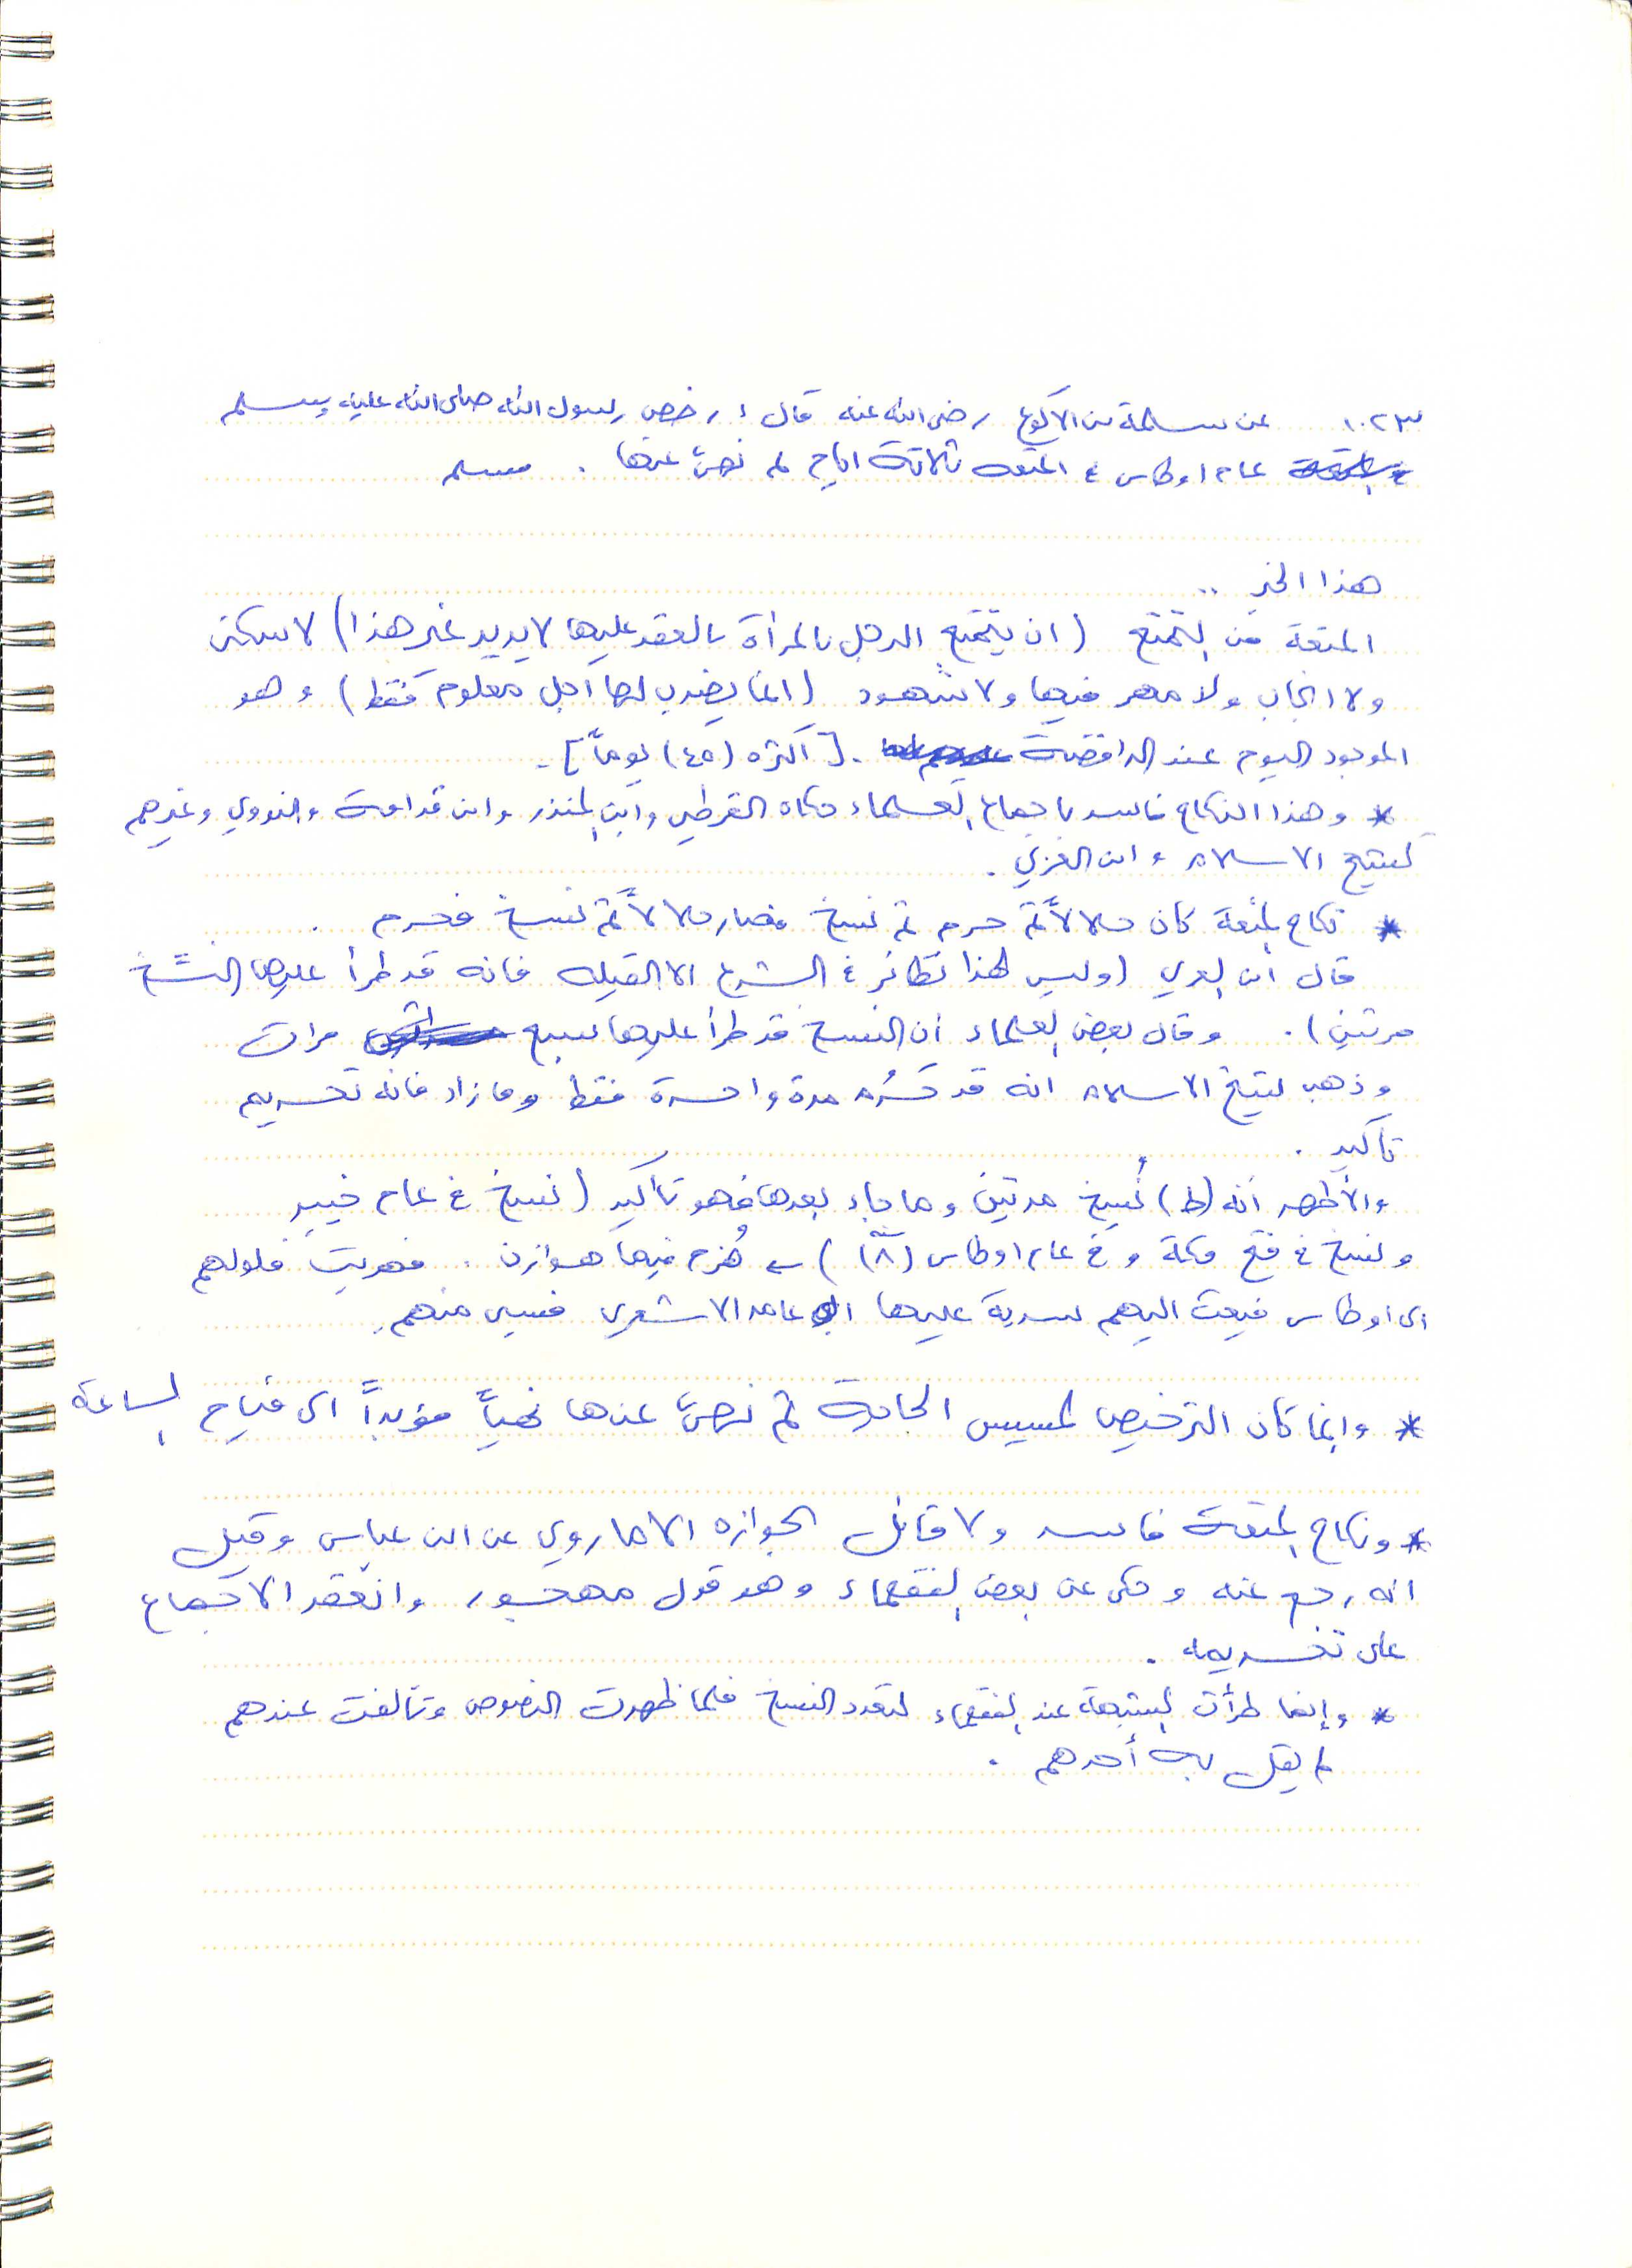 ١٠٢٣ عن سلمة بن الاكوع رضي الله عنه قال: رخص رسول الله صلى الله عليه وسلم
عام اوطاس في المتعه ثلاثة ايام ثم نهى عنها . مسلم
هذا الخبر ..
المتعة من التمتع (ان يتمتع الرجل بالمرأة بالعقد عليها لا يريد غير هذا) لا سكنى
ولا انجاب ولا مهر فيها ولا شهود (انما يضرب لها اجل معلوم فقط) وهو
الموجود اليوم عند الرافضة . [اكثره (٤٥) يوماً].
* وهذا النكاح فاسد باجماع العلماء حكاه القرطبي وابن المنذر وابن قدامة والنووي وغيرهم
كشيخ الاسلام وابن العربي .
* نكاح المتعة كان حلالاً ثم حرم ثم نسخ فصار حلالاً ثم نسخ فحرم .
قال ابن العربي (وليس لهذا نظائر في الشرع الا القبله فانه قد طرأ عليها النسخ
مرتين) . وقال بعض العلماء ان النسخ قد طرأ عليها سبع مرات
وذهب شيخ الاسلام انه قد حرّم مرة واحدة فقط وما زاد فانه تحريم
تأكيد .
والأظهر أنه (ط) نُسخ مرتين وما جاء بعدها فهو تأكيد (نسخ في عام خيبر
ونسخ في فتح مكة و في عام اوطاس (٨) ) ← هُزم فيها هوازن . فهربت فلولهم
الى اوطاس فبعث اليهم سرية عليها ابو عامر الاشعري فسبى منهم.
* وانما كان الترخيص لمسيس الحاجة ثم نهى عنها نهياً مؤبداً الى قيام الساعة
* ونكاح المتعة فاسد ولا قائل بجوازه الا ما روي عن ابن عباس وقيل
انه رجع عنه وحكى عن بعض الفقهاء وهو قول مهجور وانعقد الاجماع
على تحريمه .
* وإنما طرأت الشبهة عند الفقهاء لتعدد النسخ فلما ظهرت النصوص وتآلفت عندهم
لم يقل به أحدهم .